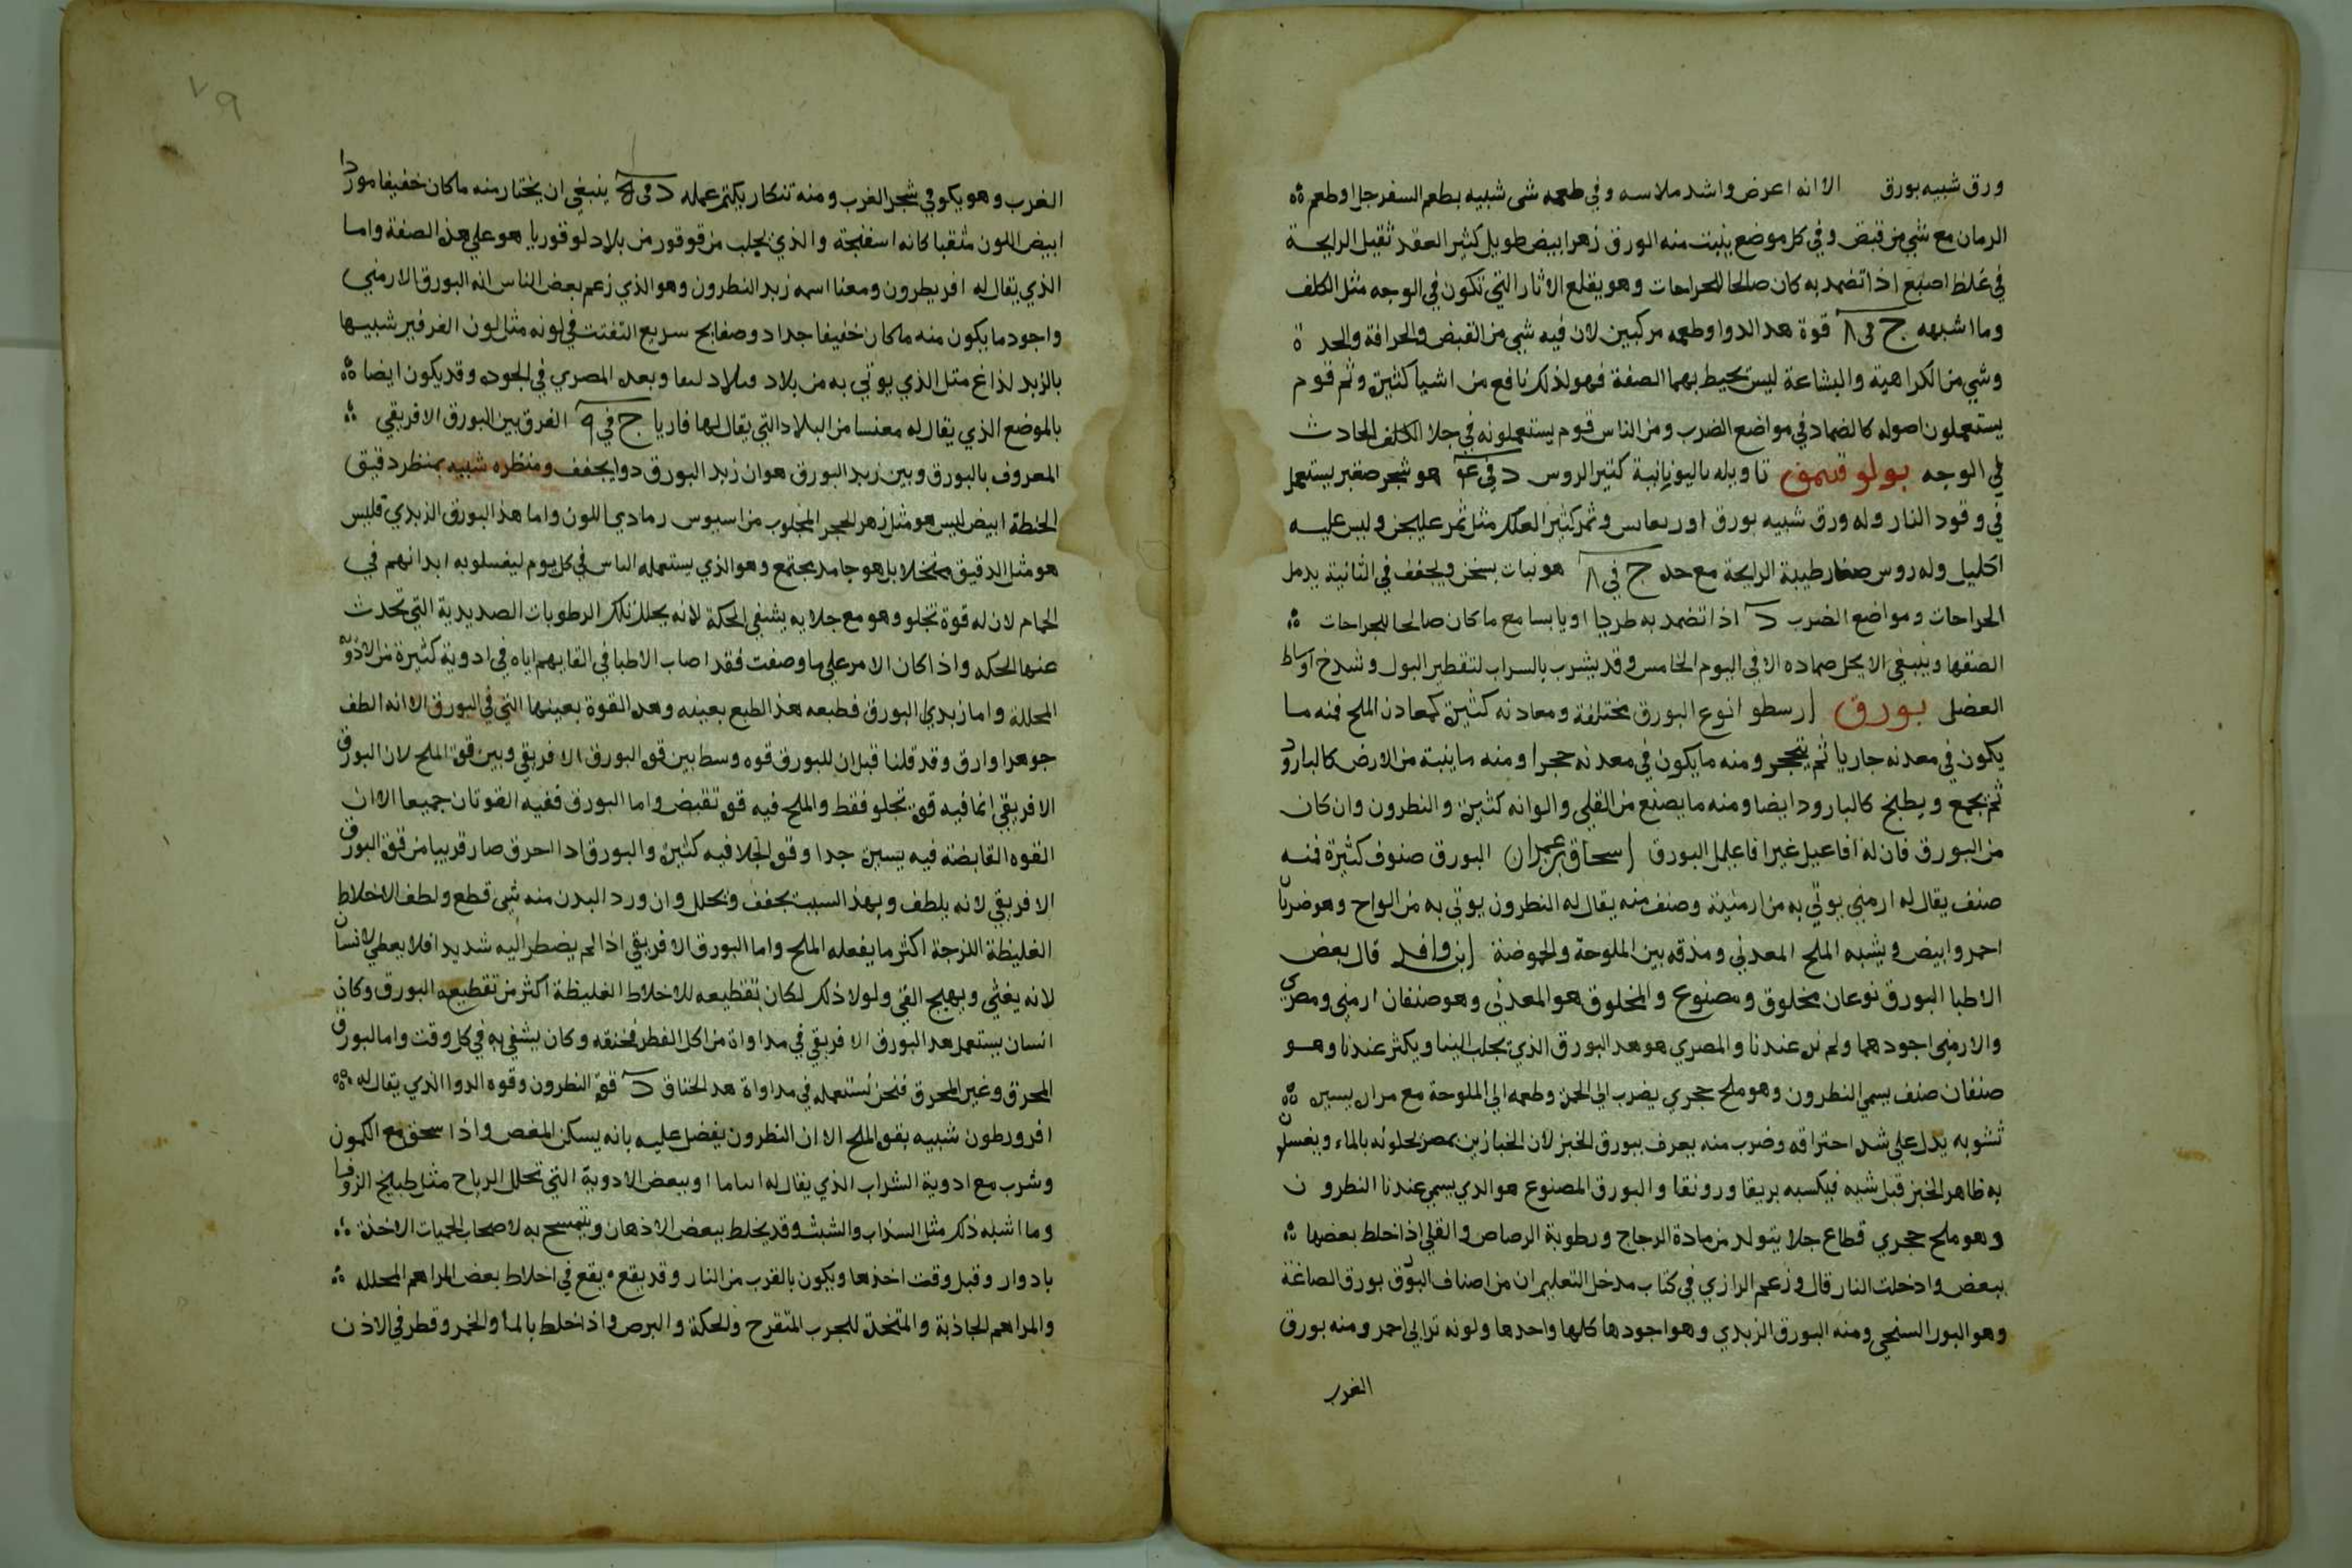 ورق شبيه بورق الا انه اعرض واشد ملاسه وفي طعمه شى شبيه بطعم السفرجل او طعم
الرمان مع شي من قبض وفي كل موضع ينبت منه الورق زهر ابيض طويل كثير العقد ثقيل الرايحة
في غلظ اصبع اذا تضمد به كان صالحا للجراحات وهو يقلع الاثار التي تكون في الوجه مثل الكلف
وما اشبهه ج في ٨ قوة هدا الدوا وطعمه مركبين لان فيه شي من القبض والحرافة والحدة
وشي من الكراهية والبشاعة ليس يحيط بهما الصفة فهو لذلك نافع من اشيا كثيرة وثم قوم
يستعملون اصوله كالضماد في مواضع الضرب ومن الناس قوم يستعملونه في جلا الكلف الحادث
في الوجه بولوقنمن تاويله باليونانية كثير الروس د في هو شجر صغير يستعمل
في وقود النار وله ورق شبيه بورق وثمر كثير مثل ثمر عليجن وليس عليه
اكليل وله روس صغار طيبة الرايحة مع حدة ج في ٨ هو نبات يسخن ويجفف في الثانية يدمل
الجراحات ومواضع الضرب د اذا تضمد به طريا او يابسا مع ما كان صالحا للجراحات
الصقها وينبغي الا يحل ضماده الا في اليوم الخامس وقد يشرب بالسراب لتقطير البول وشدخ اوساط
العضل بورق ارسطو انوع البورق مختلفة ومعادنه كثيرة كمعادن الملح فمنه ما
يكون في معدنه جاريا ثم يتحجر ومنه ما يكون في معدنه حجرا ومنه ما ينبته من الارض كالبارود
ثم يجمع ويطبخ كالبارود ايضا ومنه ما يصنع من القلي والوانه كثيرة والنطرون وان كان
من البورق فان له افاعيل غير افاعيل البورق اسحاق بن عمران البورق صنوف كثيرة فمنه
صنف يقال له ارمني يوتي به من ارمنية وصنف منه يقال له النطرون يوتي به من الواح وهو ضربان
احمر وابيض ويشبه الملح المعدني ومذقه بين الملوحة والحموضة ابن وافد قال بعض
الاطبا البورق نوعان مخلوق ومصنوع والمخلوق هو المعدني وهو صنفان ارمني ومصري
والارمني اجودهما ولم نره عندنا والمصري هو هدا البورق الذي يجلب الينا ويكثر عندنا وهو
صنفان صنف يسمي النطرون وهو ملح حجري يضرب الي الحمرة وطعمه الي الملوحة مع مرارة يسيرة
تشوبه يدل علي شدة احتراقه وضرب منه يعرف ببورق الخبز لان الخبازين بمصر يحلونه بالماء ويغسلون
به ظاهر الخبز قبل شيه فيكسبه بريقا ورونقا والبورق المصنوع هو الدي يسمي عندنا النطرون
وهو ملح حجري قطاع جلا يتولد من مادة الزجاج ورطوبة الرصاص والقلي اذا خلط بعضها
ببعض وادخلت النار قال وزعم الرازي في كتاب مدخل التعليم ان من اصناف البورق بورق الصاغة
وهو البور السنجي ومنه البورق الزبدي وهو اجودها كلها واحدها ولونه ترابي احمر ومنه بورق
الغرب
٧٩
الغرب وهو يكون في شجر الغرب ومنه تنكار يكثر عمله د في ينبغي ان يختار منه ما كان خفيفا موردا
ابيض اللون مثقبا كانه اسفنجة والذي يجلب من قوقور من بلاد لوقوريا هو علي هذه الصفة واما
الذي يقال له افريطرون ومعنا اسمه زبد النطرون وهو الذي زعم بعض الناس انه البورق الارمني
واجود ما يكون منه ما كان خفيفا جدا دو صفايح سريع التفتت في لونه مثل لون الفرفير شبيها
بالزبد لذاع متل الذي يوتي به من بلاد وبعده المصري في الجودة وقد يكون ايضا
بالموضع الذي يقال له مغنسا من البلاد التي يقال لها فاريا ج في ٩ الفرق بين البورق الافريقي
المعروف بالبورق وبين زبد البورق هو ان زبد البورق دوا يجفف ومنظره شبيه بمنظر دقيق
الحنطة ابيض ليس هو مثل زهر الحجر المجلوب من اسيوس رمادي اللون واما هذا البورق الزبدي فليس
هو مثل الدقيق متخلا بل هو جامد مجتمع وهو الذي يستعمله الناس في كل يوم ليغسلوبه ابدانهم في
الحمام لان له قوة تجلو وهو مع جلايه يشفي الحكة لانه يحلل تلك الرطوبات الصديدية التي تحدث
عنها الحكه واذا كان الامر علي ما وصفت فقد اصاب الاطبا في القايهم اياه في ادوية كثيرة من الادوية
المحللة واما زبدي البورق فطبعه هذا الطبع بعينه وهده القوة بعينها التي في البورق الا انه الطف
جوهرا وارق وقد قلنا قبل ان للبورق قوه وسط بين قوة البورق الافريقي وبين قوة الملح لان البورق
الافريقي انما فيه قوة تجلو فقط والملح فيه قوة تقبض واما البورق ففيه القوتان جميعا الا ان
القوه القابضة فيه يسيرة جدا وقوة الجلا فيه كثيرة والبورق ادا احرق صار قريبا من قوة البورق
الافريقي لانه يلطف وبهذا السبب يجفف ويحلل وان ورد البدن منه شي قطع ولطف الاخلاط
الغليظة اللزجة اكثر ما يفعله الملح واما البورق الافريقي اذا لم يضطر اليه شديدا فلا يعطي لانسان
لانه يغثي ويهيج القي ولولا ذلك لكان تقطيعه للاخلاط الغليظة اكثر من تقطيعه البورق وكان
انسان يستعمل هدا البورق الافريقي في مداواة من اكل الفطر فخنقه وكان يشفي به في كل وقت واما البورق
المحرق وغير المحرق فنحن نستعمله في مداواة هدا الخناق د قوة النطرون وقوه الدوا الذي يقال له
افرورطون شبيه بقوة الملح الا ان النطرون يفضل عليه بانه يسكن المغص واذا سحق مع الكمون
وشرب مع ادوية الشراب الذي يقال له او ببعض الادوية التي تحلل الرياح مثل طبيخ الزوفا
وما اشبه ذلك مثل السذاب والشبث وقد يخلط ببعض الاذهان ويتمسح به لاصحاب الحميات الاخذة
بادوار وقبل وقت اخذها ويكون بالقرب من النار وقد يقع يقع في اخلاط بعض المراهم المحلله
والمراهم الجاذبة والمتخذة للجرب المتقرح والحكة والبرص واذا خلط بالما والخمر وقطر في الاذن